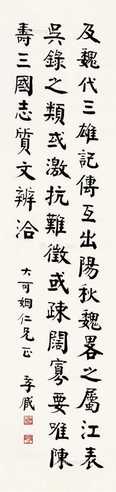 及魏代三雄記傳互出陽秋魏畧之屬江表
吳錄之類或激抗難徵或疎闊寡要唯陳
壽三國志質文辨洽
大可姻仁兄正 季